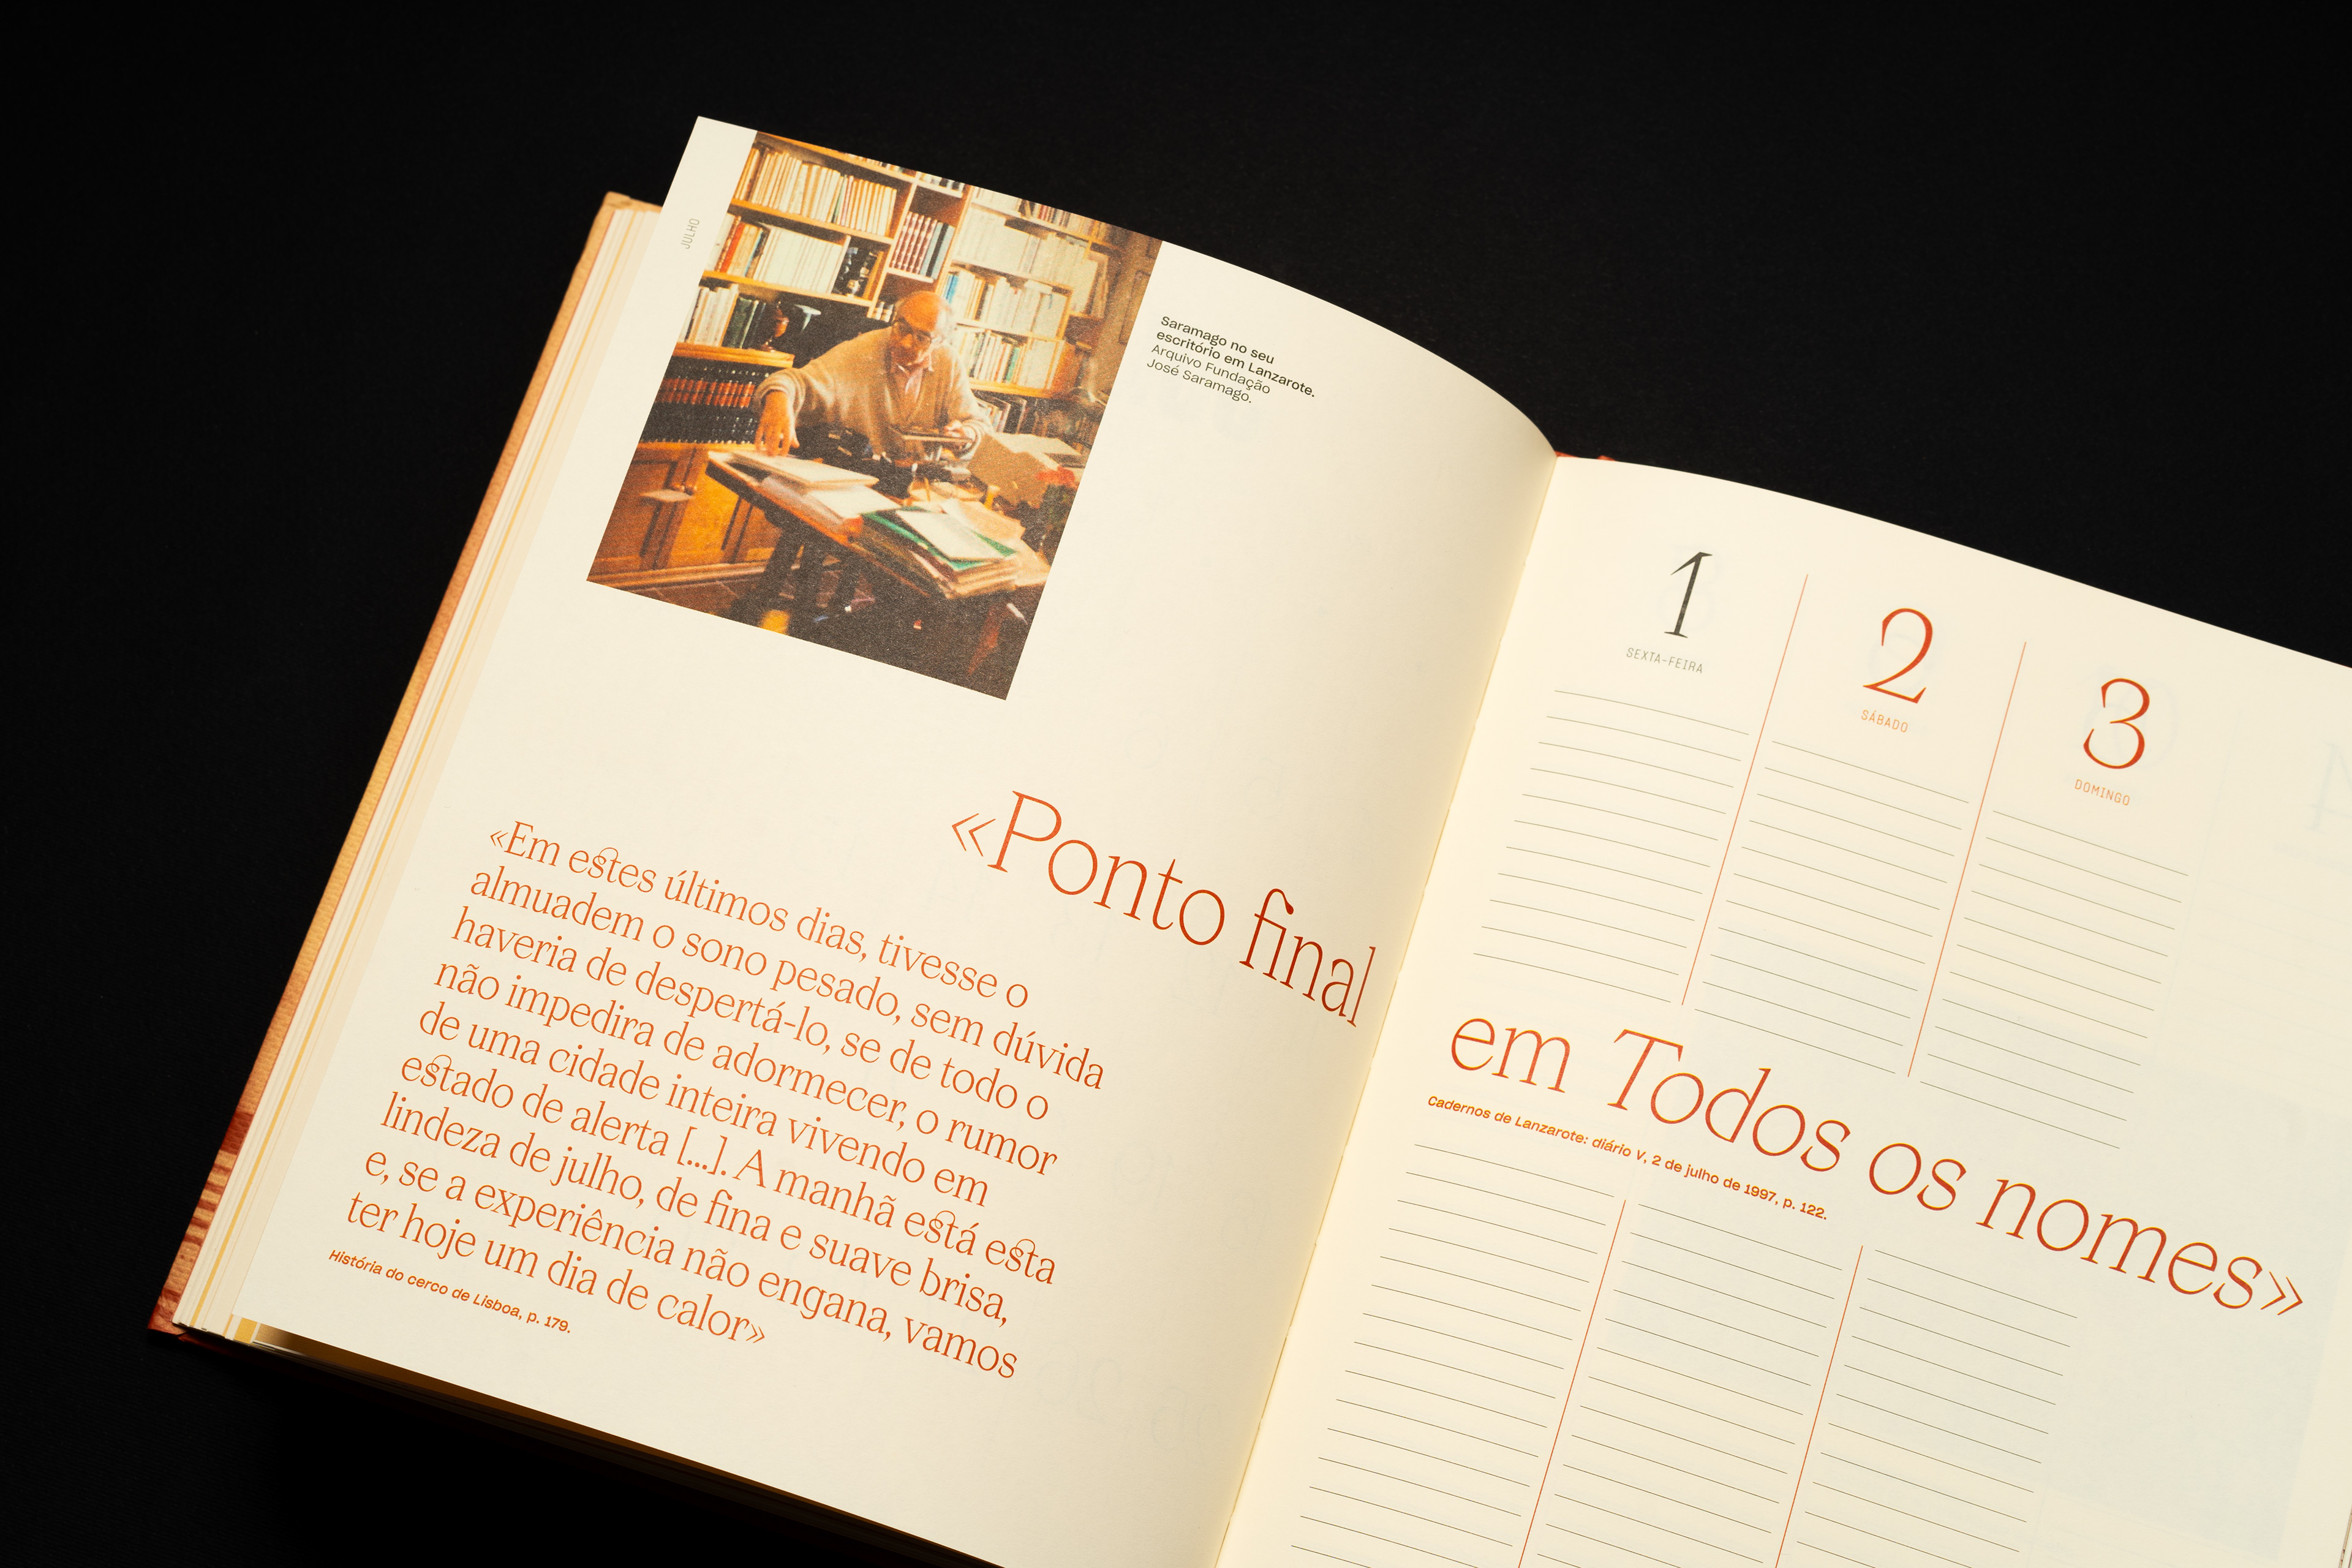 JULHO
Saramago no seu
escritório em Lanzarote.
Arquivo Fundação
José Saramago.
«Ponto final
«Em estes últimos dias, tivesse o
almuadem o sono pesado, sem dúvida
haveria de despertá-lo, se de todo o
não impedira de adormecer, o rumor
de uma cidade inteira vivendo em
estado de alerta [...]. A manhã está esta
lindeza de julho, de fina e suave brisa,
e, se a experiência não engana, vamos
ter hoje um dia de calor»
História do cerco de Lisboa, p. 179.
1
SEXTA-FEIRA
2
SÁBADO
3
DOMINGO
em Todos os nomes»
Cadernos de Lanzarote: diário V, 2 de julho de 1997, p. 122.